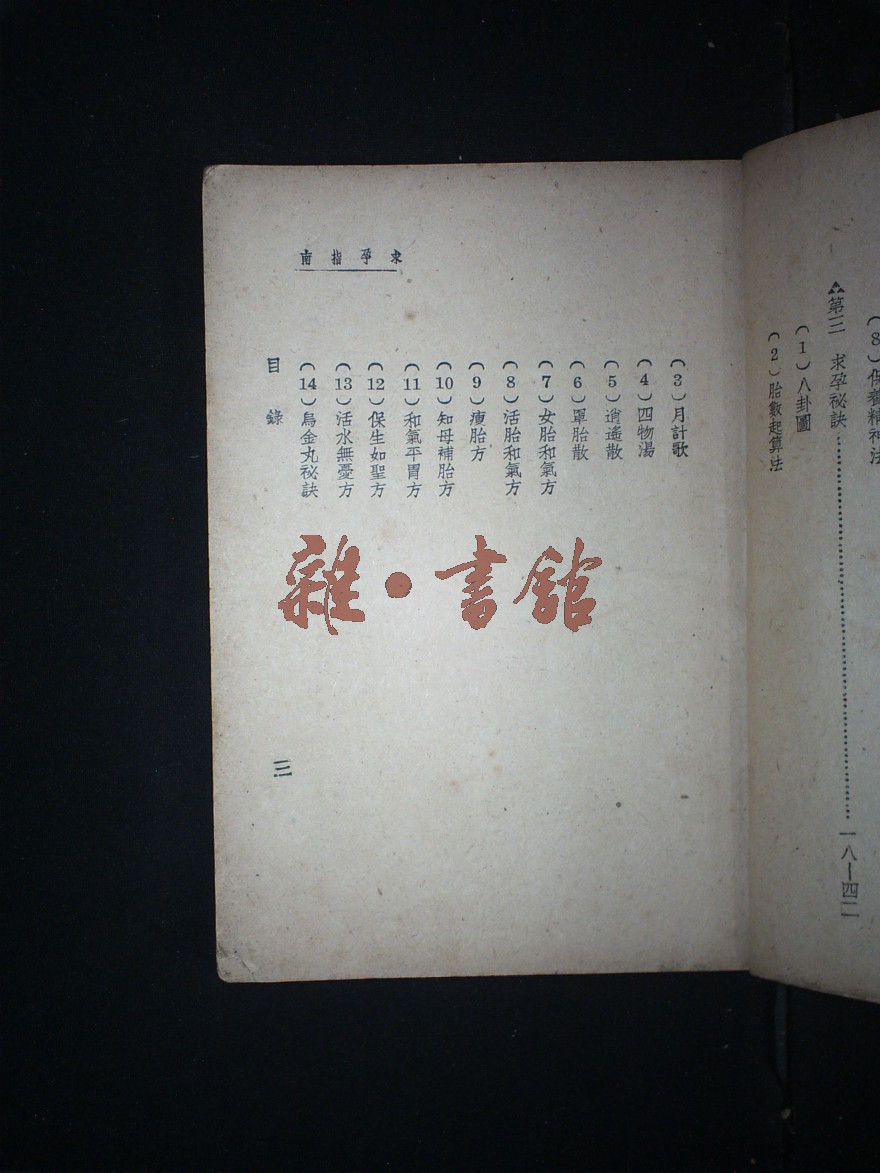 (8)保養精神法
第三 求孕祕訣……一八—四二
(1)八卦圖
(2)胎數起算法
求孕指南
(3)月計歌
(4)四物湯
(5)逍遙散
(6)罩胎散
(7)女胎和氣方
(8)活胎和氣方
(9)瘦胎方
(10)知母補胎方
(11)和氣平胃方
(12)保生如聖方
(13)活水無憂方
(14)烏金丸祕訣
目錄
三
雜·書館